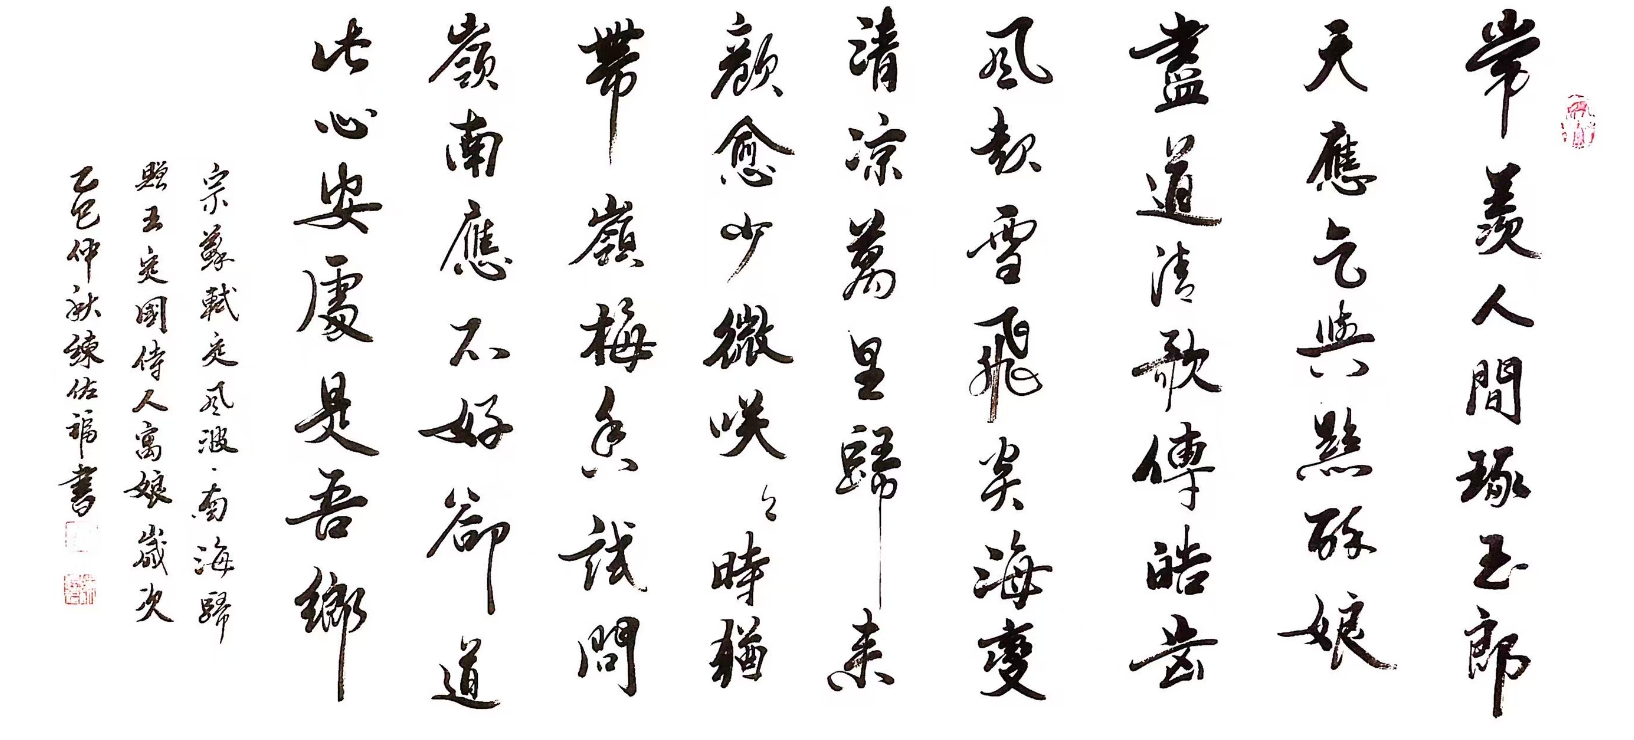 常羨人間琢玉郎
天應乞與點酥娘
盡道清歌傳皓齒
風起雪飛炎海變
清凉萬里歸来
顏愈少微咲々時猶
帶嶺梅香試問
嶺南應不好卻道
此心安處是吾鄉
宗蘇軾定風波·南海歸
贈王定國侍人寓娘歲次
乙巳仲秋佐福書